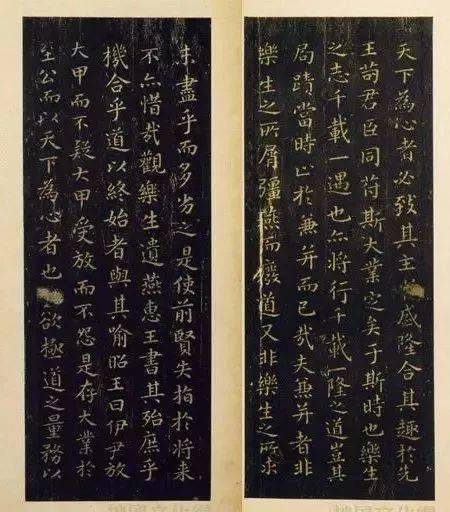 未盡乎而多劣之是使前賢失指於將來
不亦惜哉觀樂生遺燕惠王書其殆庶乎
機合乎道以終始者與其喻昭王曰伊尹放
大甲而不疑大甲受放而不怨是存大業於
至公而以天下為心者也欲極道之量務以
天下為心者必致其主盛隆合其趣於先
王苟君臣同苻斯大業定矣于斯時也樂生
之志千載一遇也亦將行千載一隆之道豈其
局蹟當時止於兼并而已哉夫兼并者非
樂生之所屑彊燕而廢道又非樂生之所求